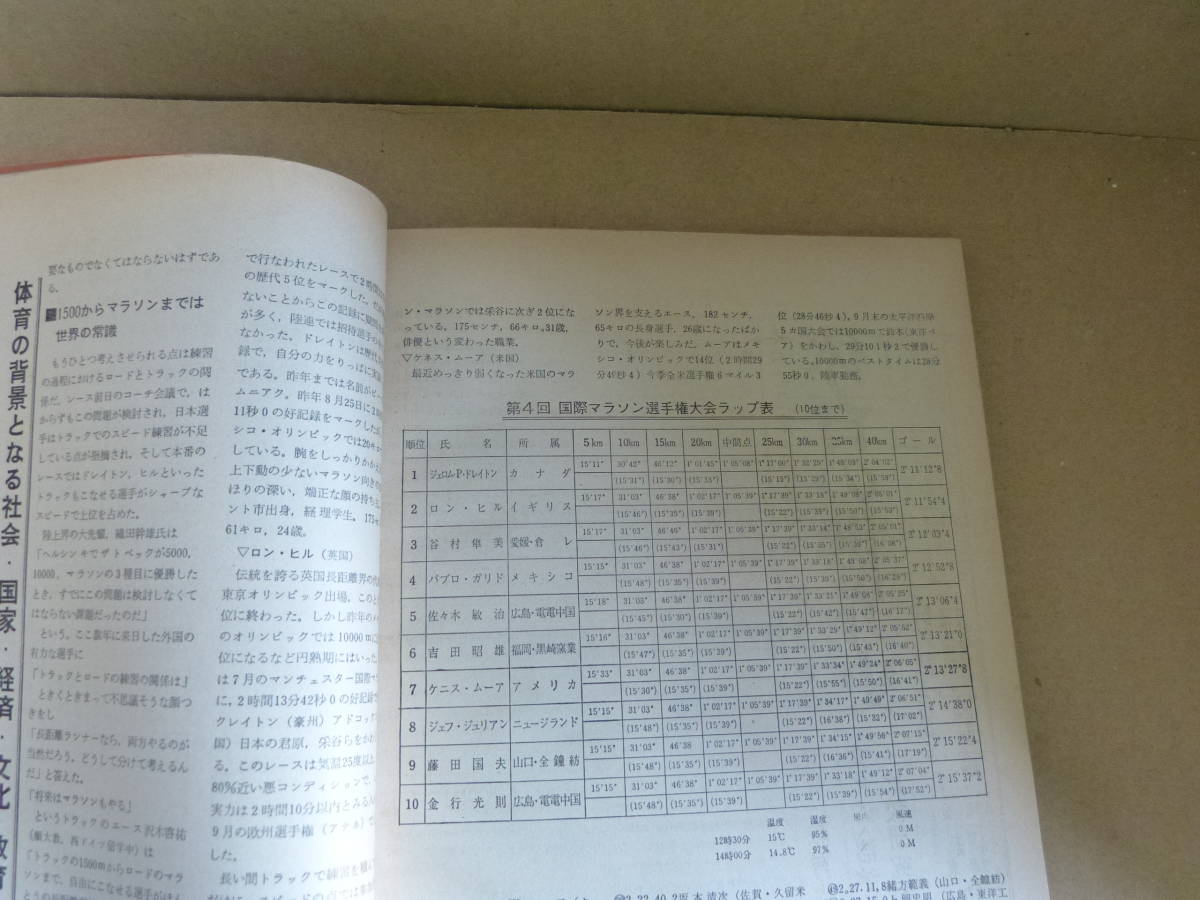 要なものでなくてはならないはずであ
る。
1500からマラソンまでは
世界の常識
もうひとつ考えさせられる点は練習
の過程におけるロードとトラックの関
係だ。レース前日のコーチ会議で、は
からずもこの問題が検討され、日本選
手はトラックでのスピード練習が不足
している点が指摘され、そして本番の
レースではドレイトン、ヒルといった
トラックもこなせる選手がシャープな
スピードで上位を占めた。
陸上界の大先輩、織田幹雄氏は
「ヘルシンキでザトペックが5000,
10000, マラソンの3種目に優勝した
とき、すでにこの問題は検討しなくて
はならない課題だったのだ」
という。ここ数年に来日した外国の
有力な選手に
「トラックとロードの練習の関係は」
ときくときまって不思議そうな顔つ
きをし
「長距離ランナーなら、両方やるのが
当然だろう。どうして分けて考えるん
だ」と答えた。
「将来はマラソンもやる」
というトラックのエース沢木啓祐
(順大教、西ドイツ留学中)は
「トラックの1500mからロードのマラ
ソンまで、自由にこなせる選手がほん
体育の背景となる社会・国家・経済・文化
で行なわれたレースで2時間
の歴代5位をマークした。
ないことからこの記録に疑問
が多く、陸連では招待選手の
なかった。ドレイトンは歴代
録で、自分の力をりっぱに実
である。昨年までは名前が
ムニアク。昨年8月25日に2時
11秒0の好記録をマークしたが
シコ・オリンピックでは20キロ
している。腕をしっかりかかえ
上下動の少ないマラソン向きの
ほりの深い、端正な顔の持ち主
ント市出身、経理学生。175セ
61キロ, 24歳。
▽ロン・ヒル(英国)
伝統を誇る英国長距離界の代
東京オリンピック出場、このと
位に終わった。しかし昨年のメ
のオリンピックでは10000mに
位になるなど円熟期にはいった
は7月のマンチェスター国際マ
に, 2時間13分42秒0の好記録で
クレイトン(豪州)アドコックス
国)日本の君原、采谷らをかわ
る。このレースは気温25度以上
80%近い悪コンディションで、
実力は2時間10分以内とみる人
9月の欧州選手権(アテネ)で
した。
長い間トラックで練習を積
ン・マラソンでは采谷に次ぎ2位にな
っている。175センチ, 66キロ。31歳,
俳優という変わった職業。
▽ケネス・ムーア(米国)
最近めっきり弱くなった米国のマラ
ソン界を支えるエース。183センチ,
65キロの長身選手。26歳になったばか
りで、今後が楽しみだ。ムーアはメキ
シコ・オリンピックで14位(2時間29
分49秒4)今季全米選手権6マイル3
位(28分46秒4), 9月末の太平洋沿岸
5カ国大会では10000mで鈴木(東洋ベ
ア)をかわし、29分10秒2で優勝し
ている。10000mのベストタイムは28分
55秒0。陸軍勤務。
第4回 国際マラソン選手権大会ラップ表 (10位まで)
順位 氏名 所属 5km 10km 15km 20km 中間点 25km 30km 35km 40km ゴール
1 ジェロム・P・ドレイトン カナダ 15'11" 30'42" 46'12" 1°01'45" 1°05'08" 1°17'00" 1°32'29" 1°48'03" 2°04'02" 2°11'12"8
(15'31") (15'30") (15'33") (15'15") (15'29") (15'34") (15'59")
2 ロン・ヒル イギリス 15'17" 31'03" 46'38" 1°02'17" 1°05'39" 1°17'39" 1°33'18" 1°49'08" 2°05'01" 2°11'54"4
(15'46") (15'35") (15'39") (15'22") (15'39") (15'50") (15'53")
3 谷村隼美 愛媛・倉レ 15'17" 31'03" 46'46" 1°02'17" 1°05'39" 1°17'39" 1°33'14" 1°48'53" 2°05'01" 2°12'03"4
(15'46") (15'43") (15'31") (15'22") (15'35") (15'39") (16'08")
4 パブロ・ガリド メキシコ 15'15" 31'03" 46'38" 1°02'17" 1°05'39" 1°17'39" 1°33'18" 1°49'08" 2°05'37" 2°12'52"8
(15'48") (15'35") (15'39") (15'22") (15'39") (15'50") (16'29")
5 佐々木敏治 広島・電電中国 15'18" 31'03" 46'38" 1°02'17" 1°05'39" 1°17'39" 1°33'21" 1°49'08" 2°05'25" 2°13'06"4
(15'45") (15'35") (15'39") (15'22") (15'42") (15'47") (16'17")
6 吉田昭雄 福岡・黒崎窯業 15'16" 31'03" 46'38" 1°02'17" 1°05'39" 1°17'39" 1°33'29" 1°49'12" 2°05'52" 2°13'21"0
(15'47") (15'35") (15'39") (15'22") (15'50") (15'43") (16'40")
7 ケニス・ムーア アメリカ 15'33" 31'03" 46'38" 1°02'17" 1°05'39" 1°17'39" 1°33'34" 1°49'24" 2°06'05" 2°13'27"8
(15'30") (15'35") (15'39") (15'22") (15'55") (15'50") (16'41")
8 ジェフ・ジュリアン ニュージランド 15'15" 31'03" 46'38" 1°02'17" 1°05'39" 1°17'39" 1°34'17" 1°49'49" 2°06'51" 2°14'38"0
(15'48") (15'35") (15'39") (15'22") (16'38") (15'32") (17'02")
9 藤田国夫 山口・全鐘紡 15'15" 31'03" 46'38 1°02'17" 1°05'39" 1°17'39" 1°34'15" 1°49'56" 2°07'15" 2°15'22"4
(15'48") (15'35") (15'39") (15'22") (16'36") (15'41") (17'19")
10 金行光則 広島・電電中国 15'15" 31'03" 46'38" 1°02'17" 1°05'39" 1°17'39" 1°33'18" 1°49'12" 2°07'04" 2°15'37"2
(15'48") (15'35") (15'39") (15'22") (15'39") (15'54") (17'52")
温度 湿度 風向 風速
12時30分 15℃ 95% 0M
14時00分 14.8℃ 97% 0M
2.22.40.2坂本清次(佐賀・久留米
2.27.11,8緒方範義(山口・全鐘紡)
(広島・東洋工